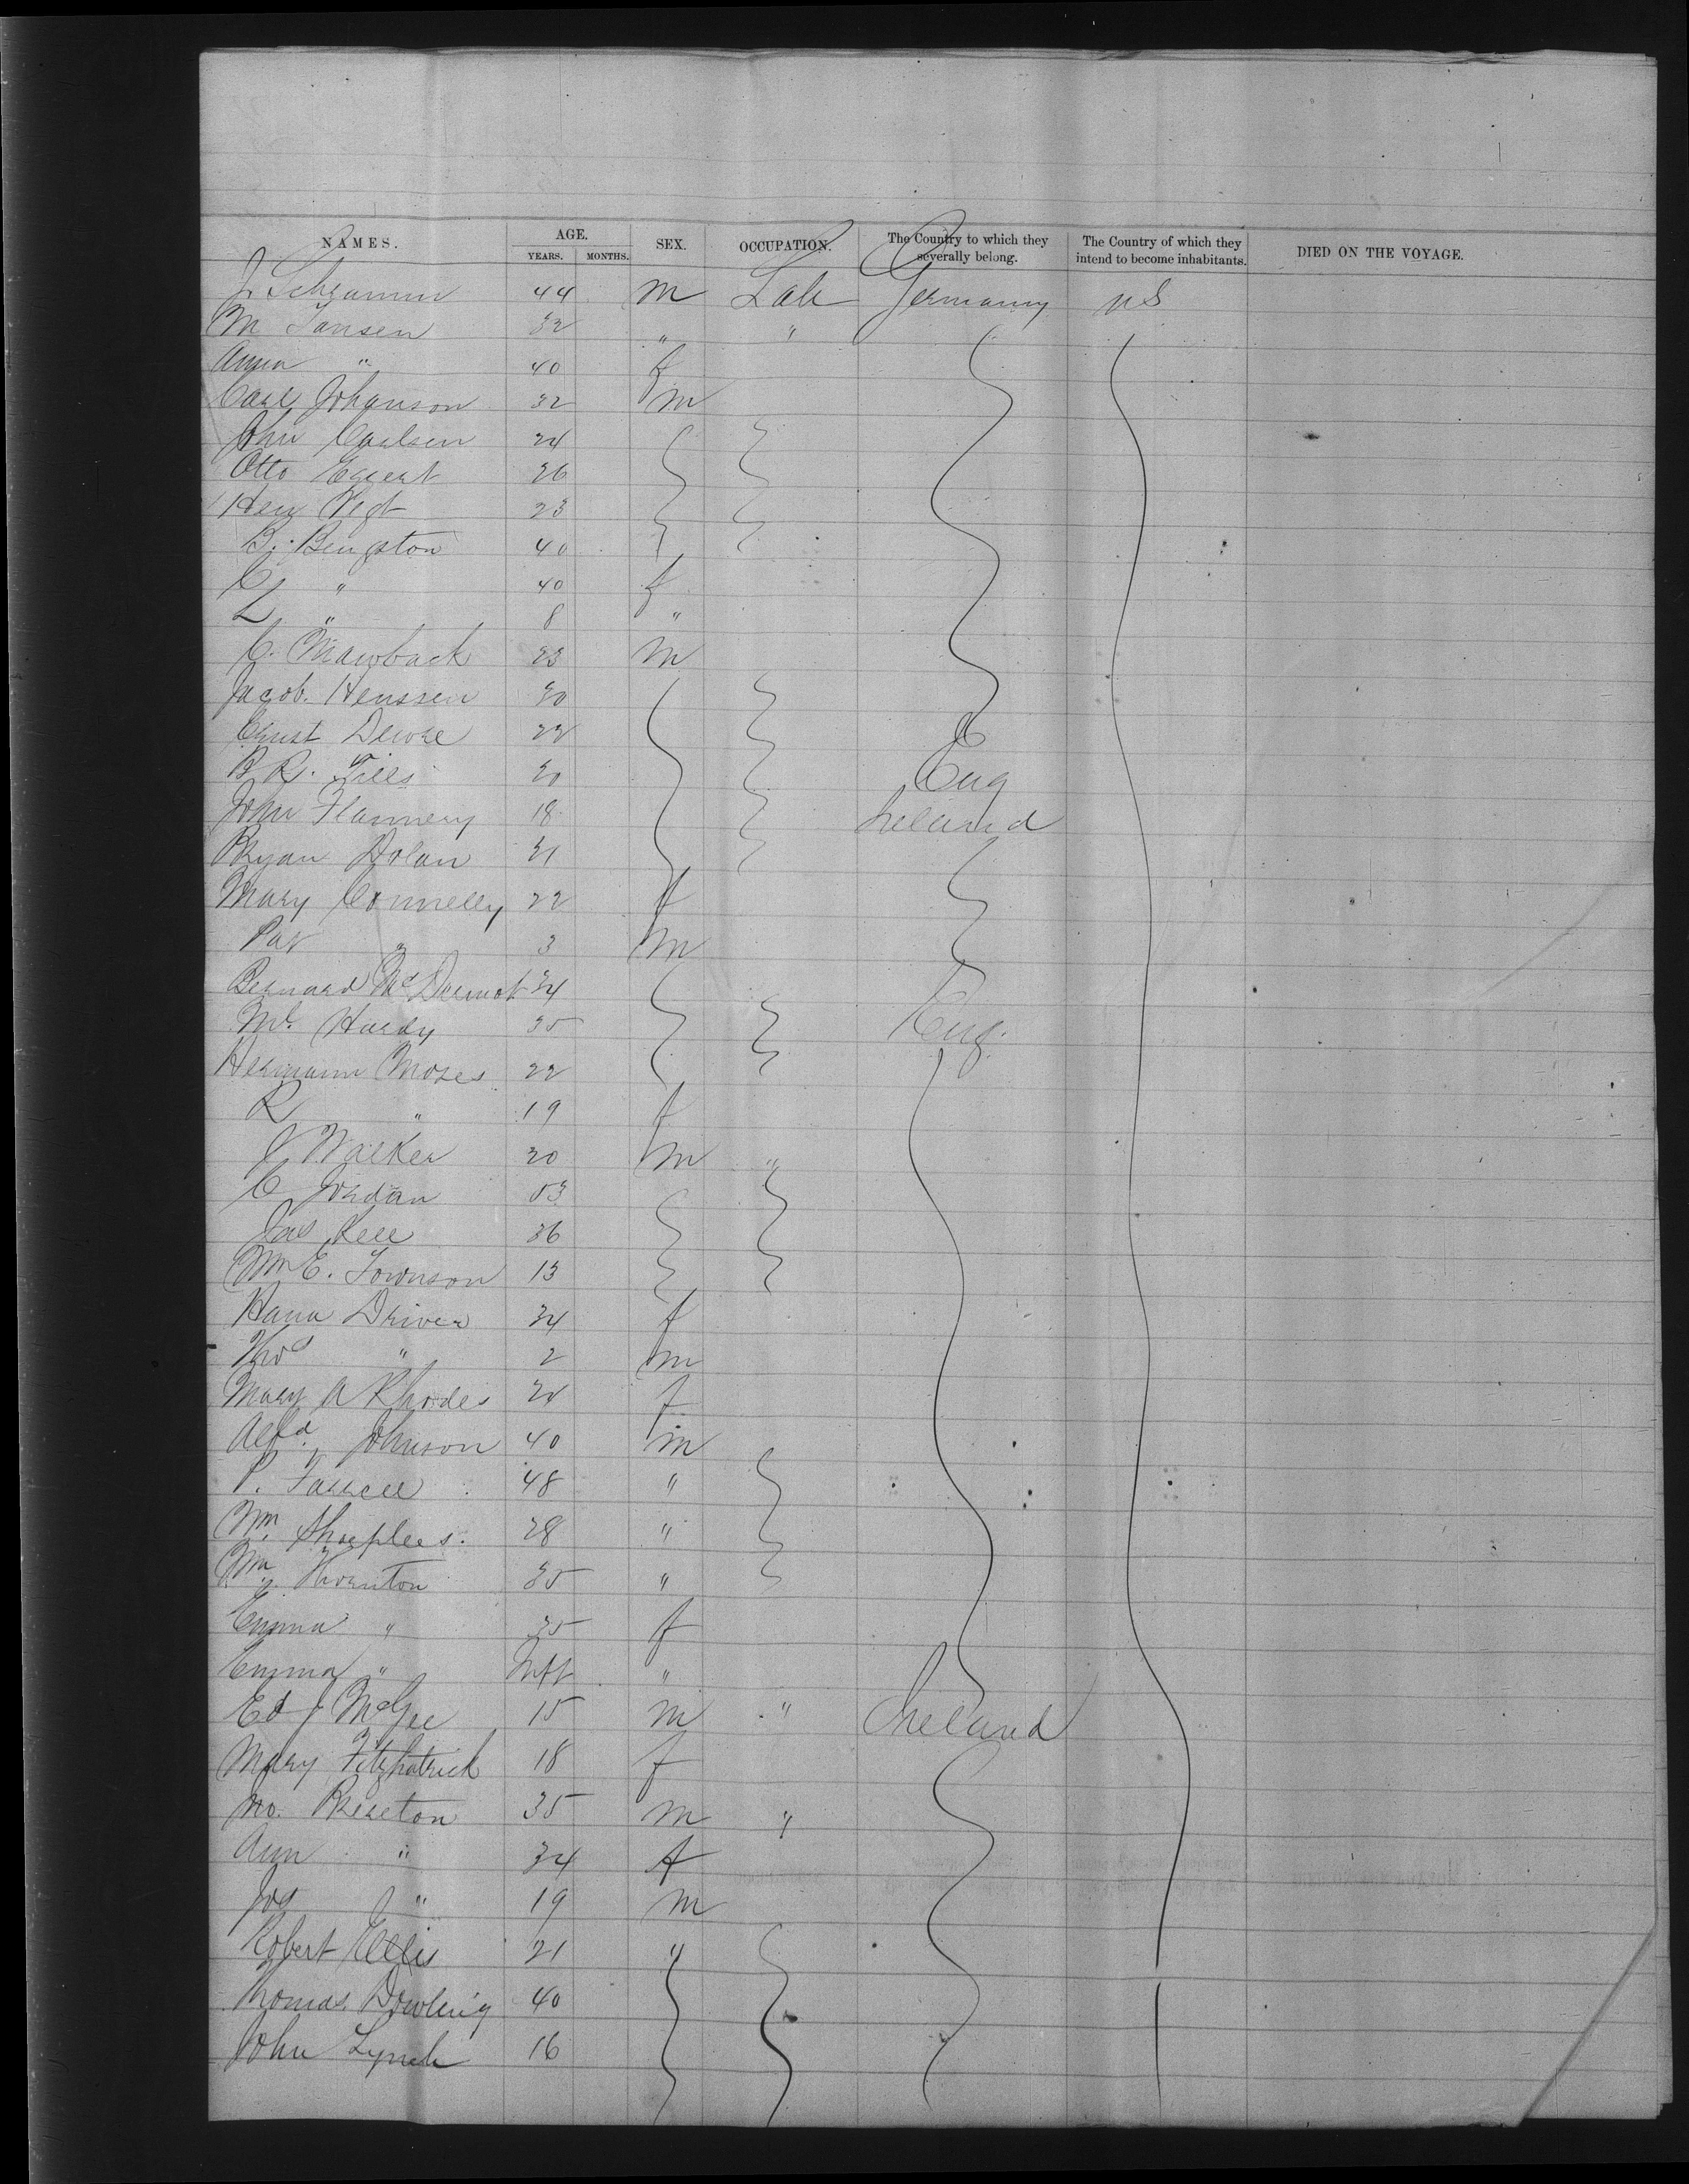 NAMES. AGE. SEX. OCCUPATION. The Country to which they severally belong. The Country of which they intend to become inhabitants. DIED ON THE VOYAGE.
YEARS. MONTHS.
J. Schramm 44 m Lab Germany U S
M Jansen 32 " "
Anna " 40 f
Carl Johanson 32 m
John Carlsen 24
Otto Eggert 26
Hen Vegt 23
B. Bengston 40
C " 40 f
L " 8 "
C. Mawback 23 m
Jacob Henssen 30
Ernst 22
B R. Tills 30 Eng
John Flannery 18 Ireland
Bryan Dolan 31
Mary Connelly 22 f
Pat " 3 m
Bernard McDermot 34
Mc Hardy 35 Eng.
Hermann Moses 22
R " 19 f
J Walker 20 m "
C Jordan 53
Jas Kell 36
Wm E. Townson 13
Hana Driver 34 f
Thos " 2 m
Mary A Rhodes 24 f
Alfd. Johnson 40 m
P. Farrell 48 "
Wm Sharples. 28 "
Wm Thornton 35 "
Emma " 35 f
Emma " Inft "
Ed J McGee 15 m " Ireland
Mary Fitzpatrick 18 f
Jno. Brereton 35 m "
Ann " 34 f
Jos " 19 m
Robert Ellis 21 "
Thomas Dowling 40
John Lynch 16